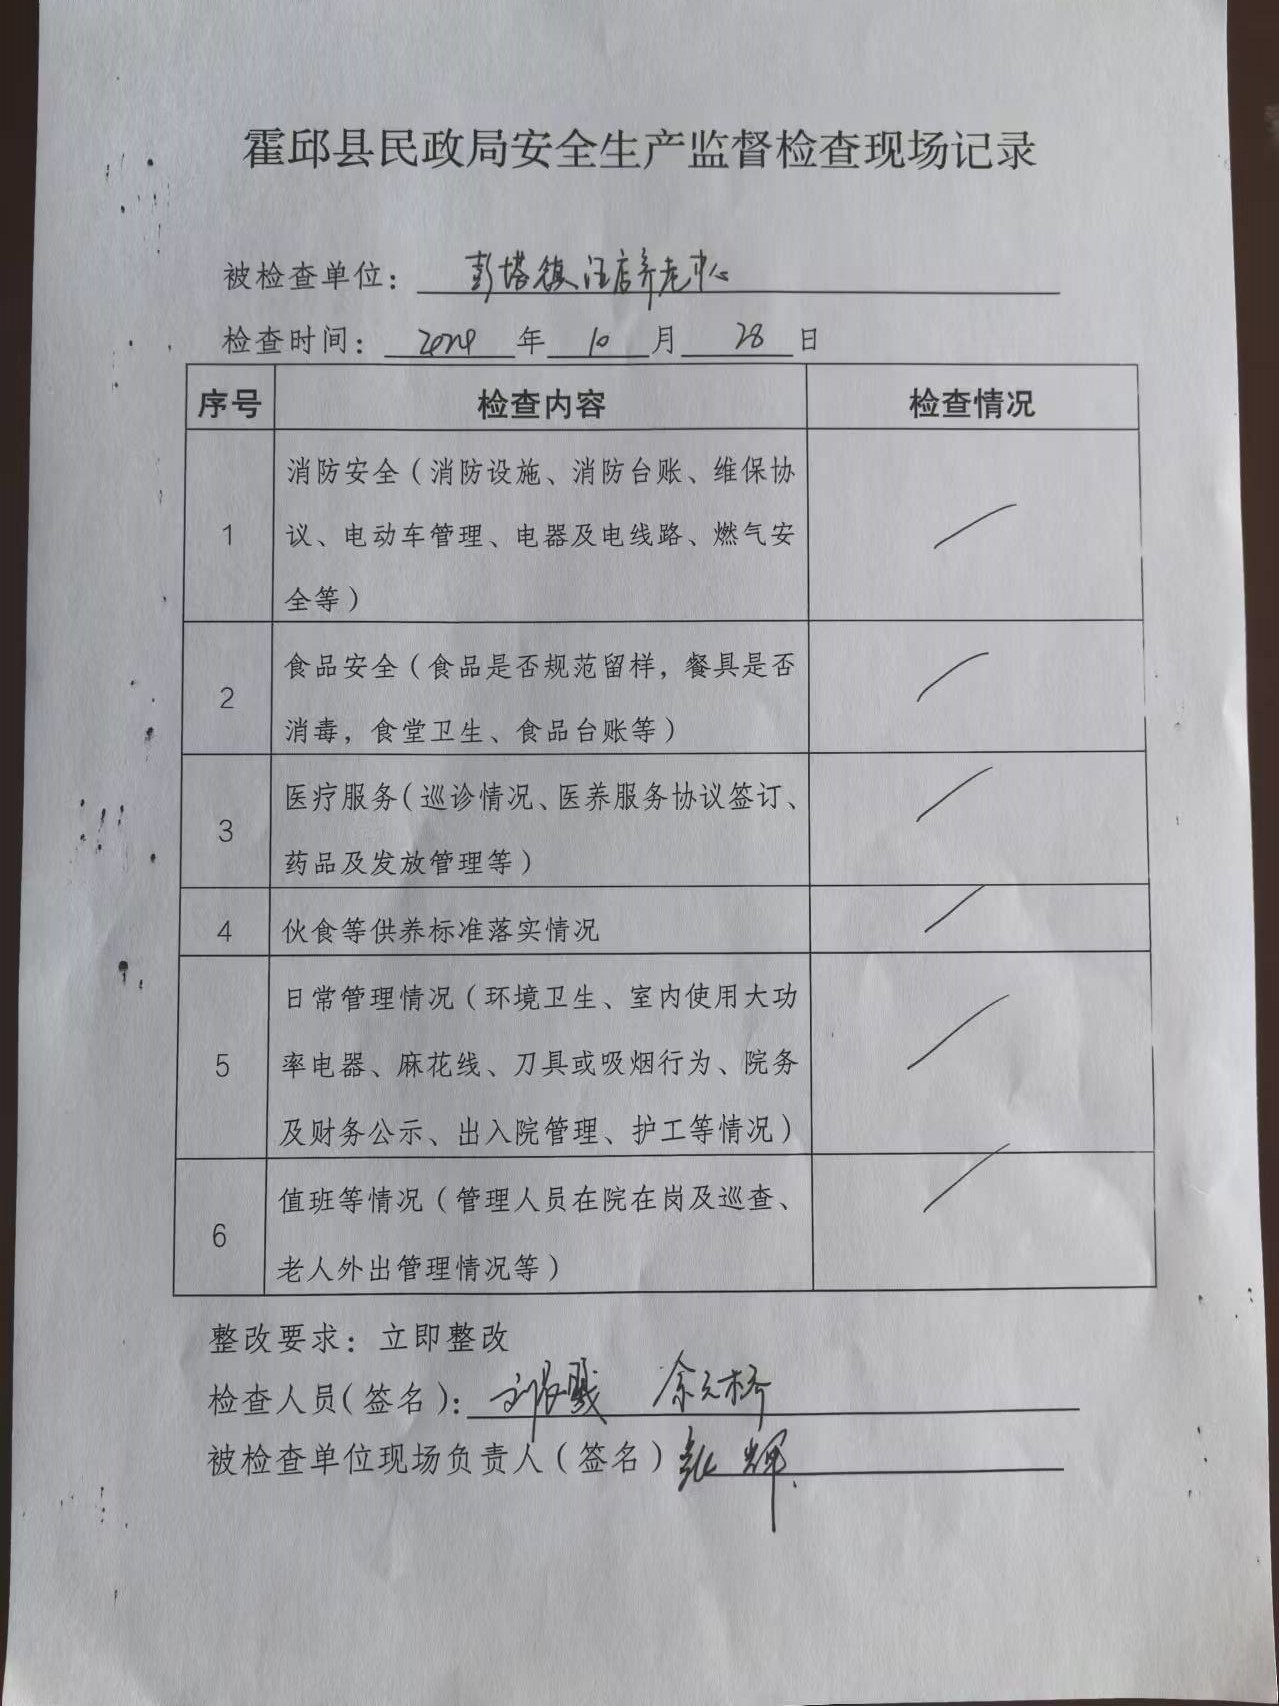 霍邱县民政局安全生产监督检查现场记录
被检查单位：彭塔镇汪店养老中心
检查时间：2024年10月28日
序号 检查内容 检查情况
消防安全（消防设施、消防台账、维保协
1 议、电动车管理、电器及电线路、燃气安
全等）
食品安全（食品是否规范留样，餐具是否
2
消毒，食堂卫生、食品台账等）
医疗服务（巡诊情况、医养服务协议签订、
3
药品及发放管理等）
4 伙食等供养标准落实情况
日常管理情况（环境卫生、室内使用大功
5 率电器、麻花线、刀具或吸烟行为、院务
及财务公示、出入院管理、护工等情况）
值班等情况（管理人员在院在岗及巡查、
6
老人外出管理情况等）
整改要求：立即整改
检查人员（签名）：
被检查单位现场负责人（签名）